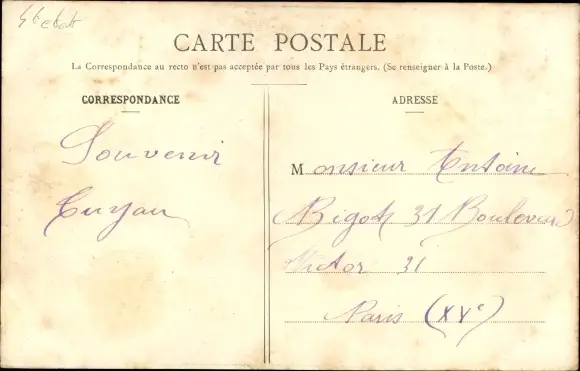 CARTE POSTALE
La Correspondance au recto n'est pas acceptée par tous les Pays étrangers. (Se renseigner à la Poste.)
CORRESPONDANCE
Souvenir
ADRESSE
Monsieur Antoine
Bigot 31 Boulevard
Victor 31
Paris (XVe)